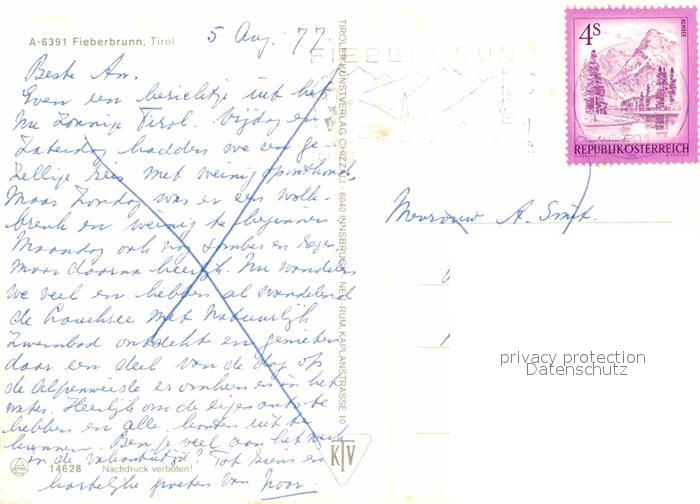 A-6391 Fieberbrunn, Tirol
5 Aug. 77.
Beste An.
Even een berichtje uit het
nu zonnige Tirol. Vrijdag en
Zaterdag hadden we een ge-
zellige reis met weinig oponthoud
Maar Zondag was er een wolk-
breuk en weinig te beginnen
Maandag ook nog somber en regen
maar daarna heerlijk. Nu wandelen
we veel en hebben al wandelend
de Lauchsee met Natuurlijk
Zwembad ontdekt en genieten
daar een deel van de dag op
de Alpenweide er omheen en in het
water. Heerlijk om de eigen auto te
hebben en alle kanten uit te
kunnen. Ben je veel aan het werk
in de vakantietijd? Tot ziens en
hartelijke groeten van
14628 Nachdruck verboten!
TIROLER KUNSTVERLAG CHIZZALI · 6040 INNSBRUCK · NEU-RUM, KAPLANSTRASSE 10
KTV
FIEBERBRUNN
4S
ALMSEE
REPUBLIK ÖSTERREICH
Mevrouw A. Smit.
privacy protection
Datenschutz